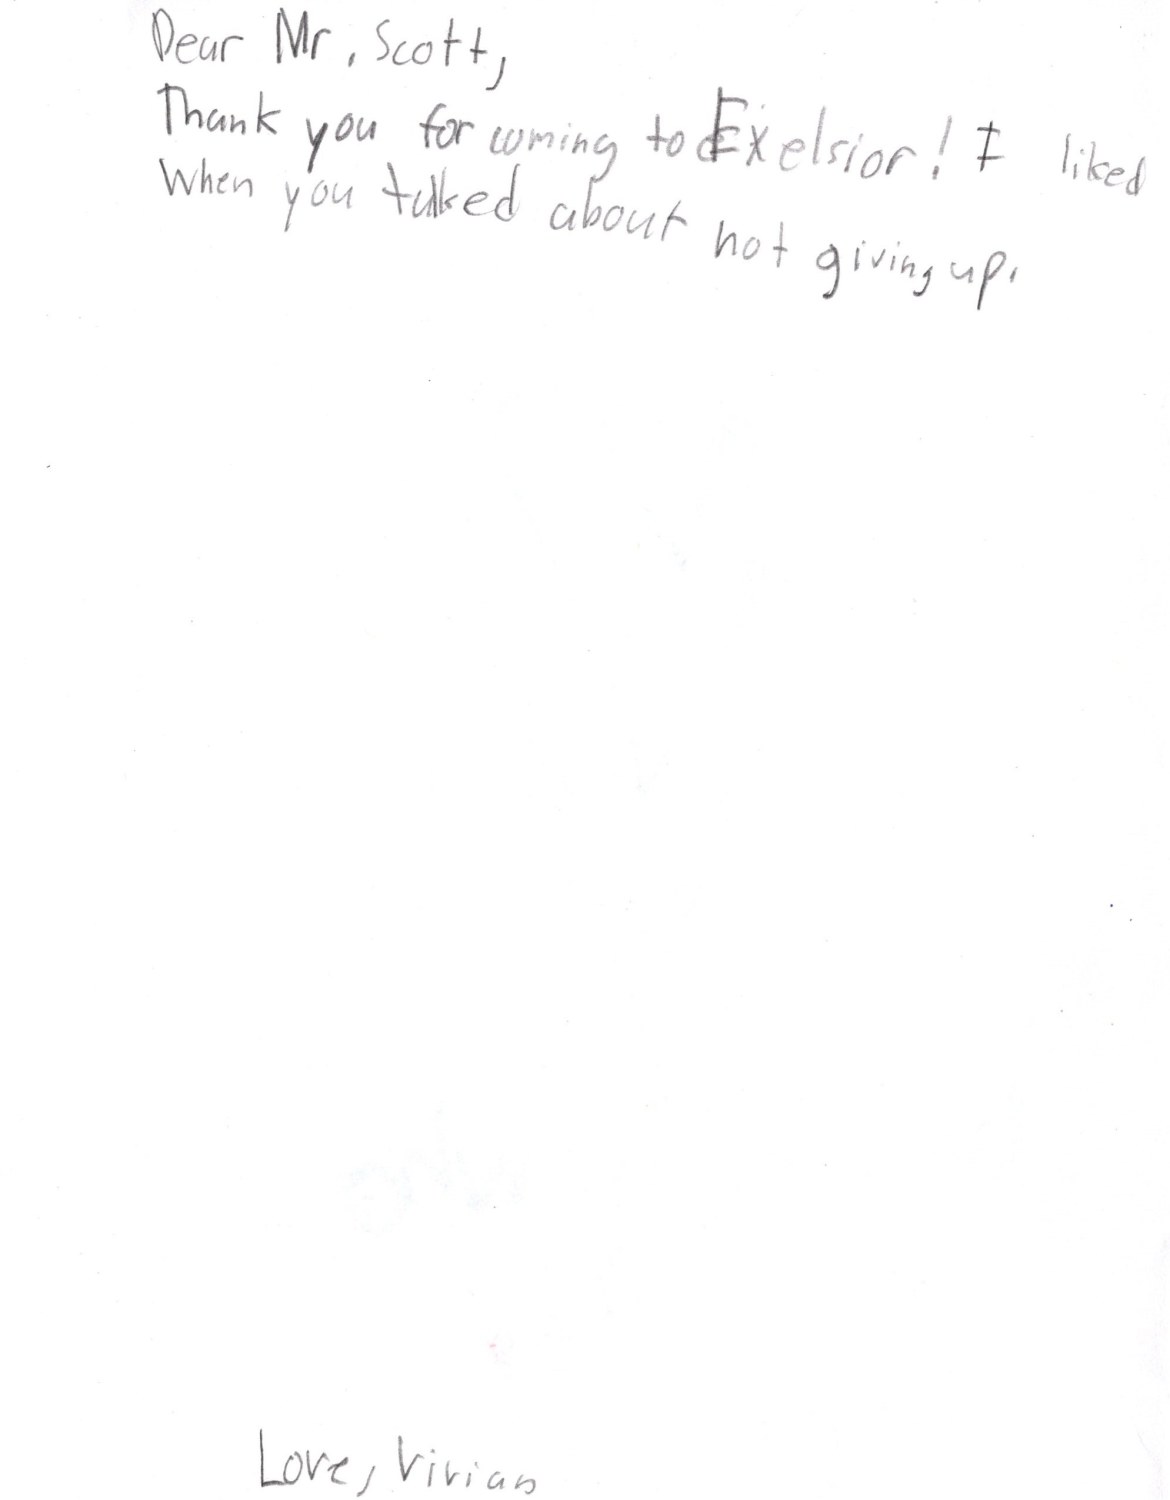 Dear Mr. Scott,
Thank you for coming to Exelsior! I liked
When you talked about not giving up.
Love, Vivian